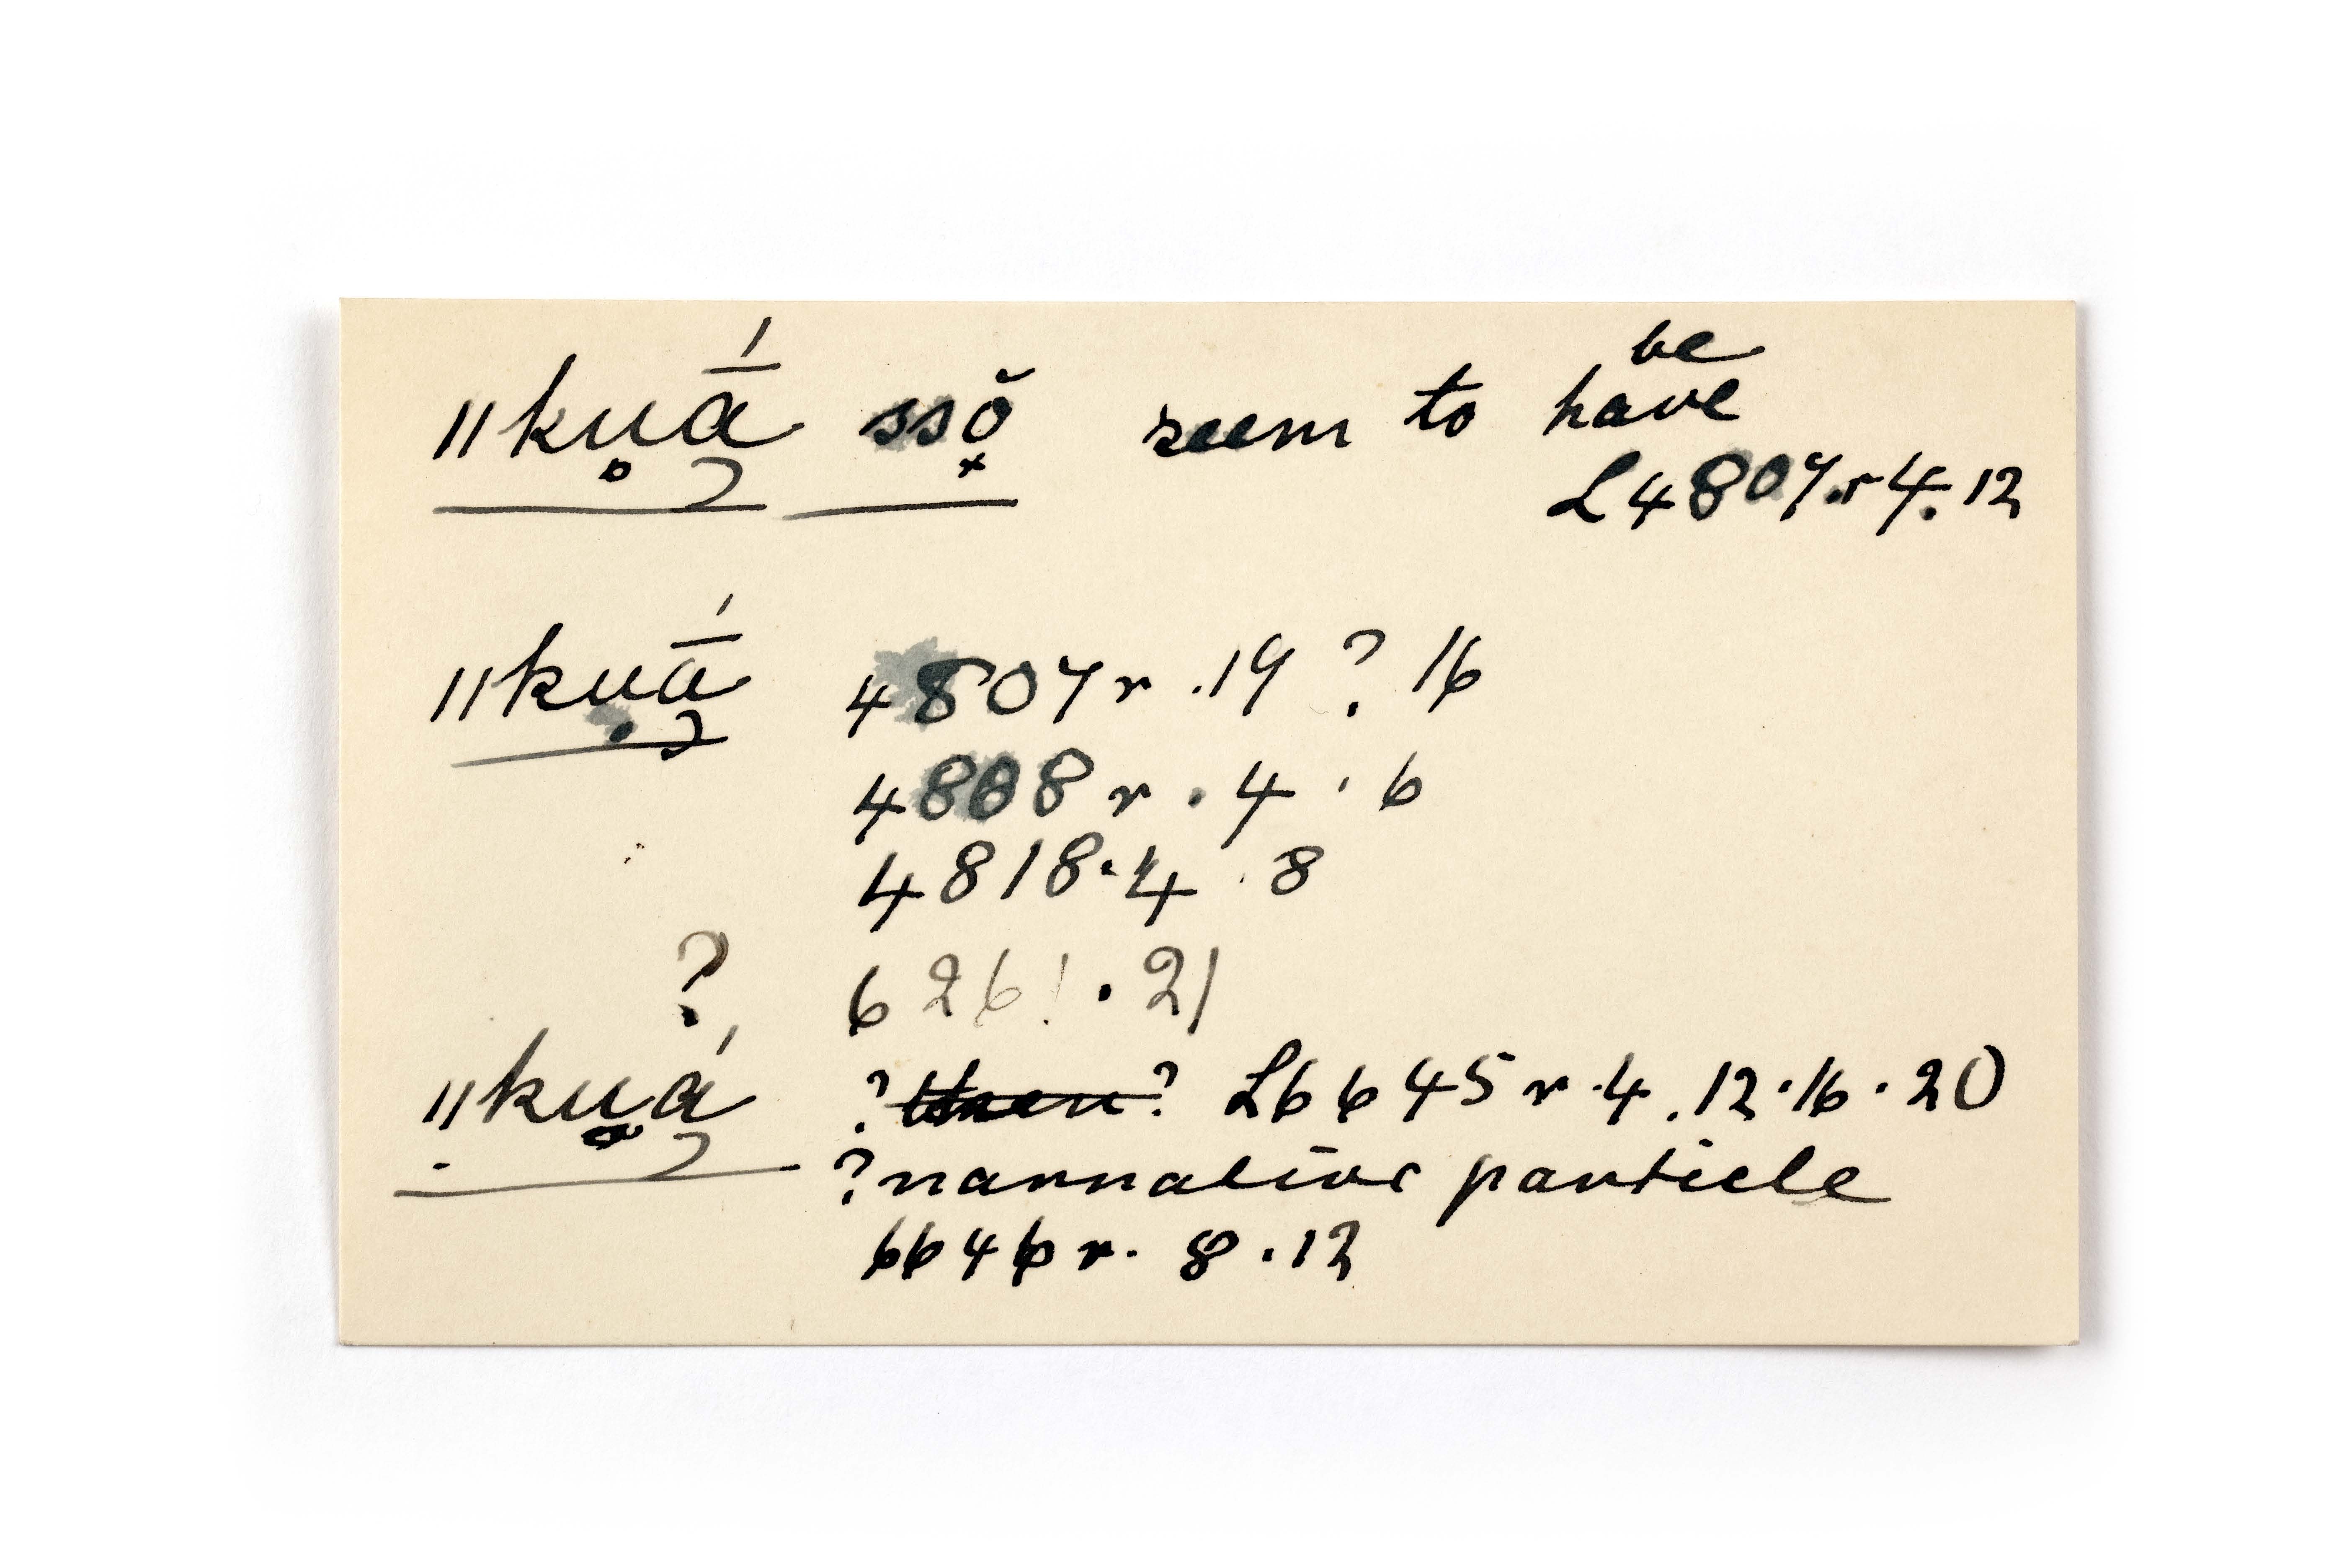 be
ǁku̥ā́ ssŏ̤ seem to have
L4807.r 4.12
ǁku̥ā́ 4807 r .19 ? 16
4808 r . 4 . 6
4818.4 . 8
? 6261 . 21
ǁku̥á ?then? L6645 r .4 .12.16.20
?narrative particle
6646 r. 8 .12